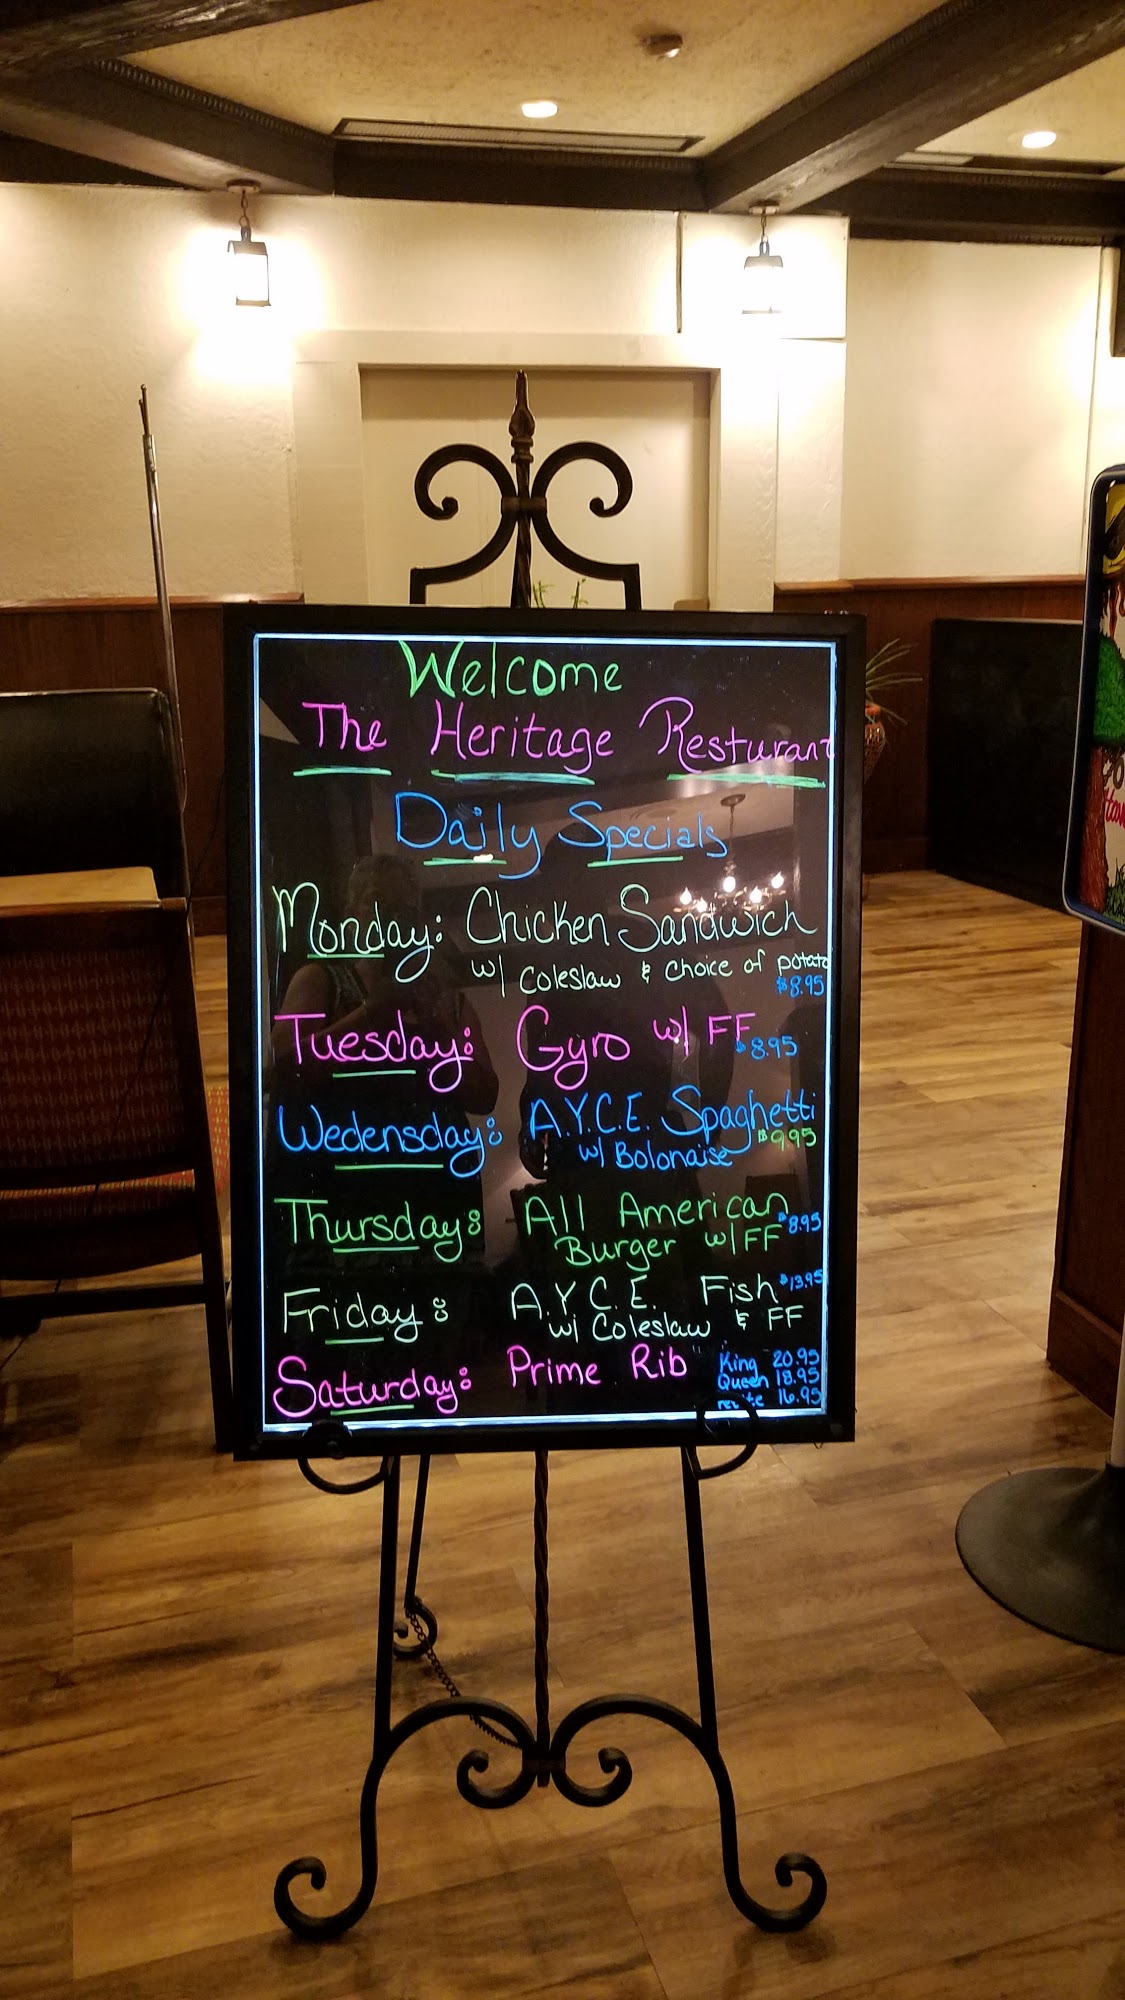 Welcome
The Heritage Resturant
Daily Specials
Monday: Chicken Sandwich
w/ Coleslaw & Choice of potato
$8.95
Tuesday: Gyro w/ FF $8.95
Wedensday: A.Y.C.E. Spaghetti
w/ Bolonaise $9.95
Thursday: All American
Burger w/ FF $8.95
Friday: A.Y.C.E. Fish $13.95
w/ Coleslaw & FF
Saturday: Prime Rib
King 20.95
Queen 18.95
16.95